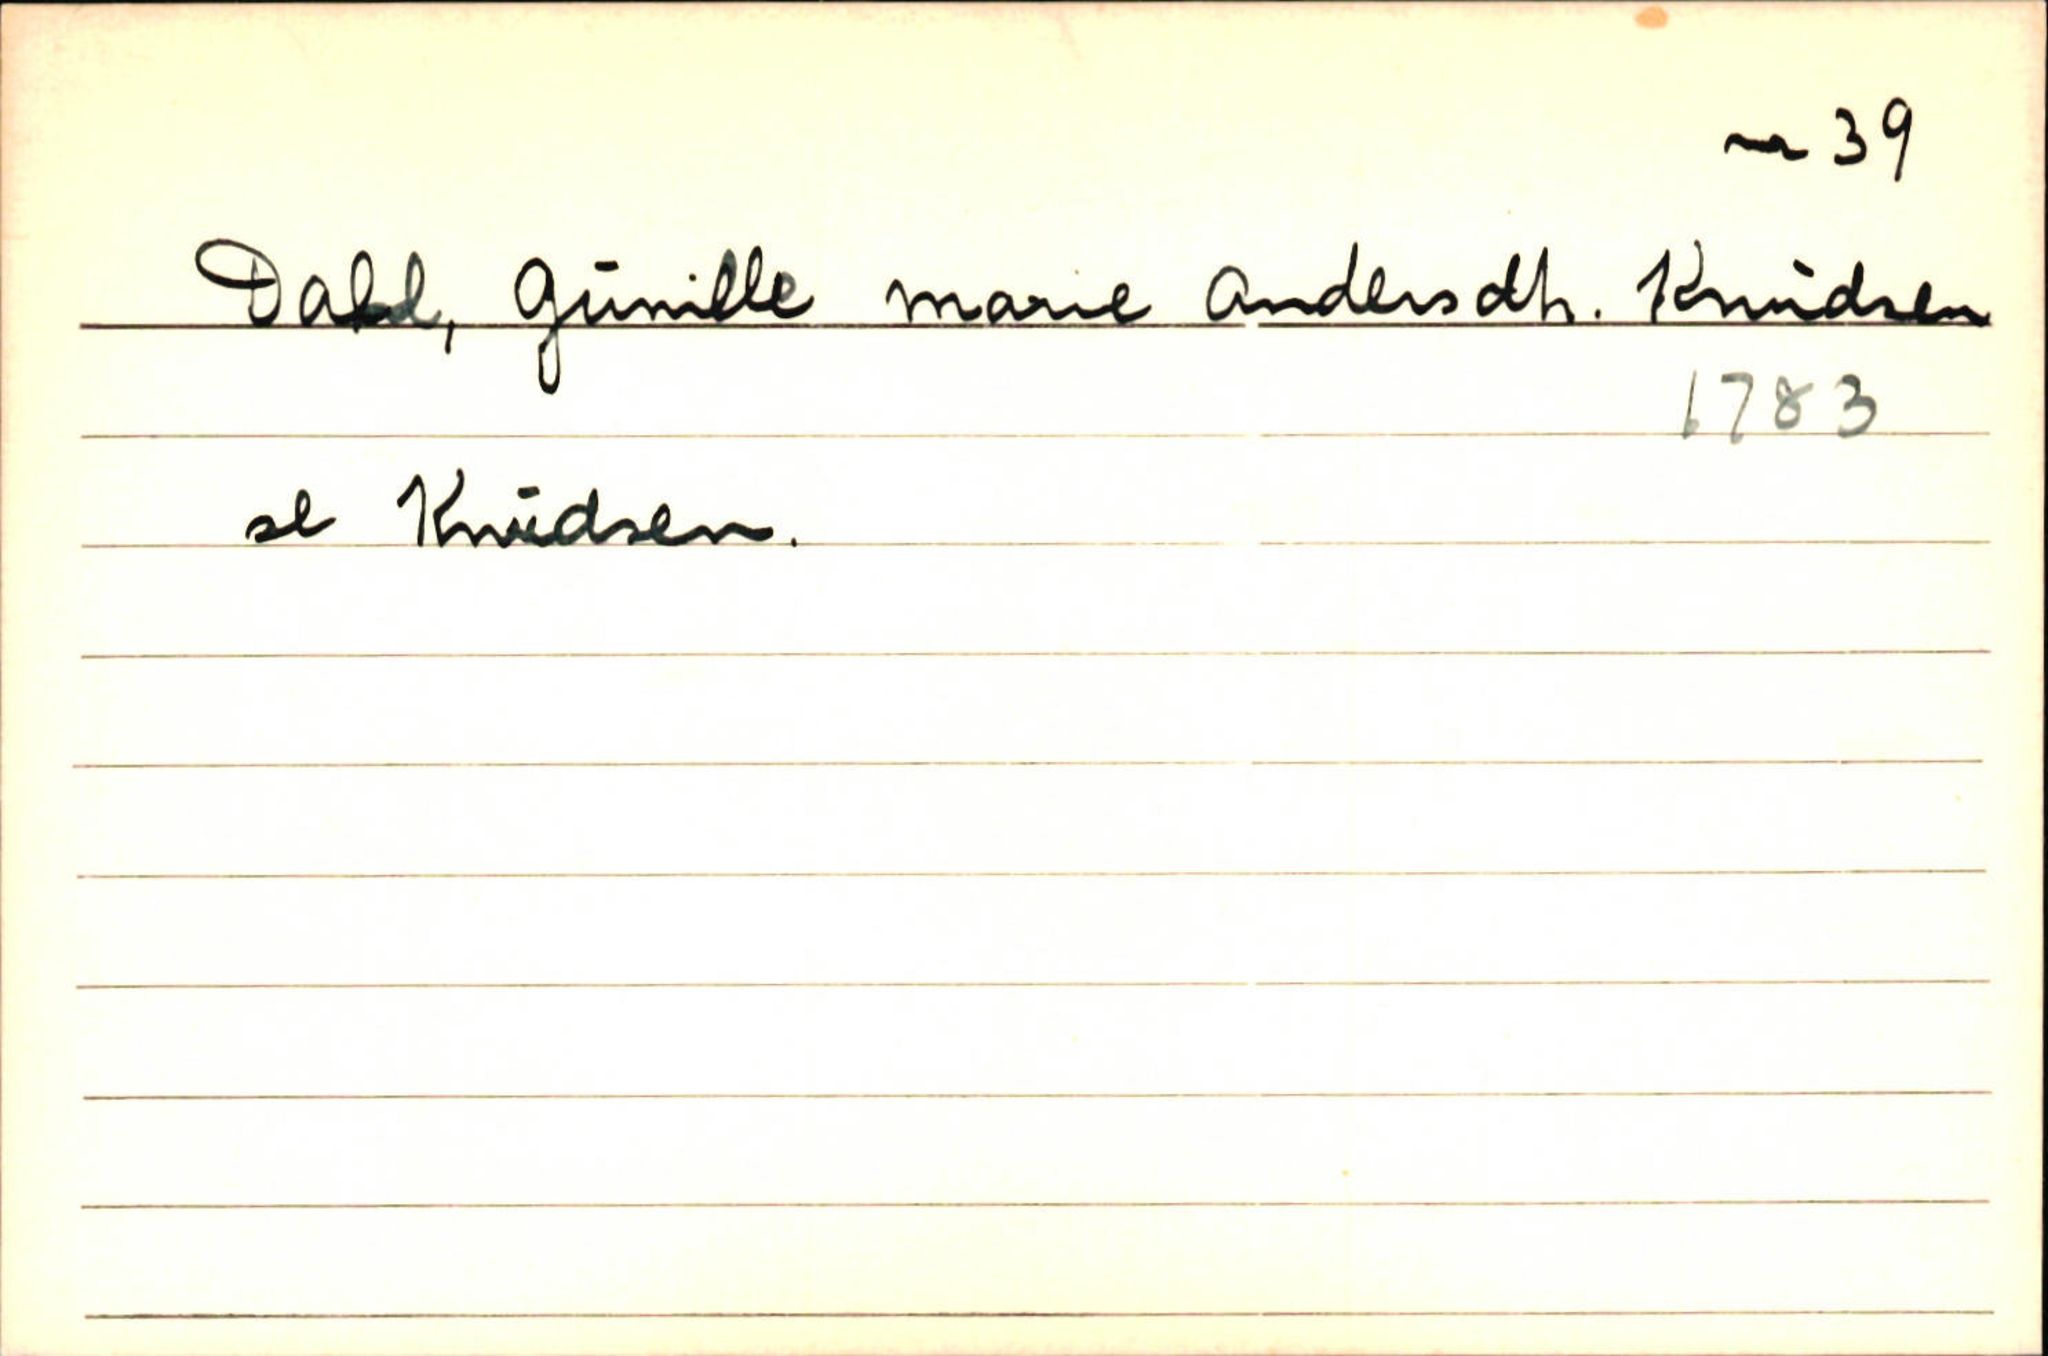 nr 39
Dahl, Gunille Marie Andersdtr. Knudsen
1783
se Knudsen.